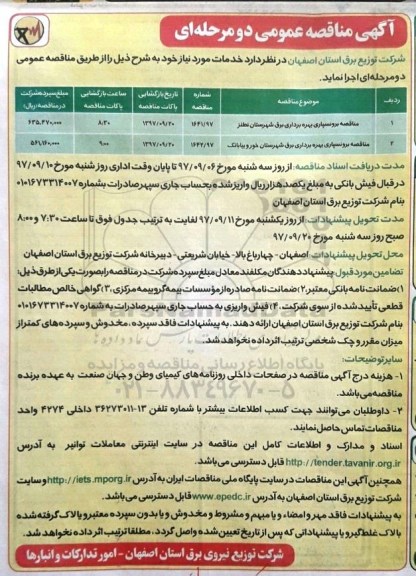 آگهی مناقصه عمومی دو مرحله‌ای
شرکت توزیع برق استان اصفهان در نظر دارد خدمات مورد نیاز خود به شرح ذیل را از طریق مناقصه عمومی
دو مرحله‌ای اجرا نماید.
ردیف موضوع مناقصه شماره مناقصه تاریخ بازگشایی پاکات مناقصه ساعت بازگشایی پاکات مناقصه مبلغ سپرده شرکت در مناقصه (ریال)
۱ مناقصه برونسپاری بهره برداری برق شهرستان نطنز ۱۶۴۱/۹۷ ۱۳۹۷/۰۹/۲۰ ۸:۳۰ ۶۳۵,۴۷۰,۰۰۰
۲ مناقصه برونسپاری بهره برداری برق شهرستان خور و بیابانک ۱۶۴۲/۹۷ ۱۳۹۷/۰۹/۲۰ ۹:۰۰ ۵۶۱,۱۶۰,۰۰۰
مدت دریافت اسناد مناقصه: از روز سه شنبه مورخ ۹۷/۰۹/۰۶ تا پایان وقت اداری روز شنبه مورخ ۹۷/۰۹/۱۰
در قبال فیش بانکی به مبلغ یکصد هزار ریال واریز شده بحساب جاری سپهر صادرات بشماره ۰۱۰۱۶۷۳۳۱۴۰۰۷
بنام شرکت توزیع برق استان اصفهان
مدت تحویل پیشنهادات: از روز یکشنبه مورخ ۹۷/۰۹/۱۱ لغایت به ترتیب جدول فوق تا ساعت ۷:۳۰ و ۸:۰۰
صبح روز سه شنبه مورخ ۹۷/۰۹/۲۰
محل تحویل پیشنهادات: اصفهان - چهارباغ بالا- خیابان شریعتی - دبیرخانه شرکت توزیع برق استان اصفهان
تضامین مورد قبول: پیشنهاد دهندگان مکلفند معادل مبلغ سپرده شرکت در مناقصه را بصورت یکی از طرق ذیل:
۱) ضمانت نامه بانکی معتبر، ۲) ضمانت نامه صادره از مؤسسات بیمه‌گر و بیمه مرکزی، ۳) گواهی خالص مطالبات
قطعی تأیید شده از سوی شرکت، ۴) فیش واریزی به حساب جاری سپهر صادرات به شماره ۰۱۰۱۶۷۳۳۱۴۰۰۷
بنام شرکت توزیع برق استان اصفهان ارائه دهند. به پیشنهادات فاقد سپرده، مخدوش و سپرده‌های کمتر از
میزان مقرر و چک شخصی ترتیب اثر داده نخواهد شد.
سایر توضیحات:
۱- هزینه درج آگهی مناقصه در صفحات داخلی روزنامه‌های کیمیای وطن و جهان صنعت به عهده برنده
مناقصه می‌باشد.
۲- داوطلبان می‌توانند جهت کسب اطلاعات بیشتر با شماره تلفن ۱۳-۳۶۲۷۳۰۱۱ داخلی ۴۲۷۴ واحد
مناقصات تماس حاصل نمایند.
اسناد و مدارک و اطلاعات کامل این مناقصه در سایت اینترنتی معاملات توانیر به آدرس
http://tender.tavanir.org.ir قابل دسترسی می‌باشد.
همچنین آگهی این مناقصات در سایت پایگاه ملی مناقصات ایران به آدرس http://iets.mporg.ir و سایت
شرکت توزیع برق استان اصفهان به آدرس www.epedc.ir قابل دسترسی می‌باشد.
به پیشنهادات فاقد مهر و امضاء و یا مبهم و مشروط و مخدوش و یا بدون سپرده معتبر و یا لاک گرفته شده
با لاک غلط گیر و یا پیشنهاداتی که پس از تاریخ تعیین شده واصل گردد، مطلقا ترتیب اثر داده نخواهد شد.
شرکت توزیع نیروی برق استان اصفهان - امور تدارکات و انبارها
پایگاه اطلاع رسانی مناقصه و مزایده
۰۲۱-۸۸۳۴۹۶۷۰-۵